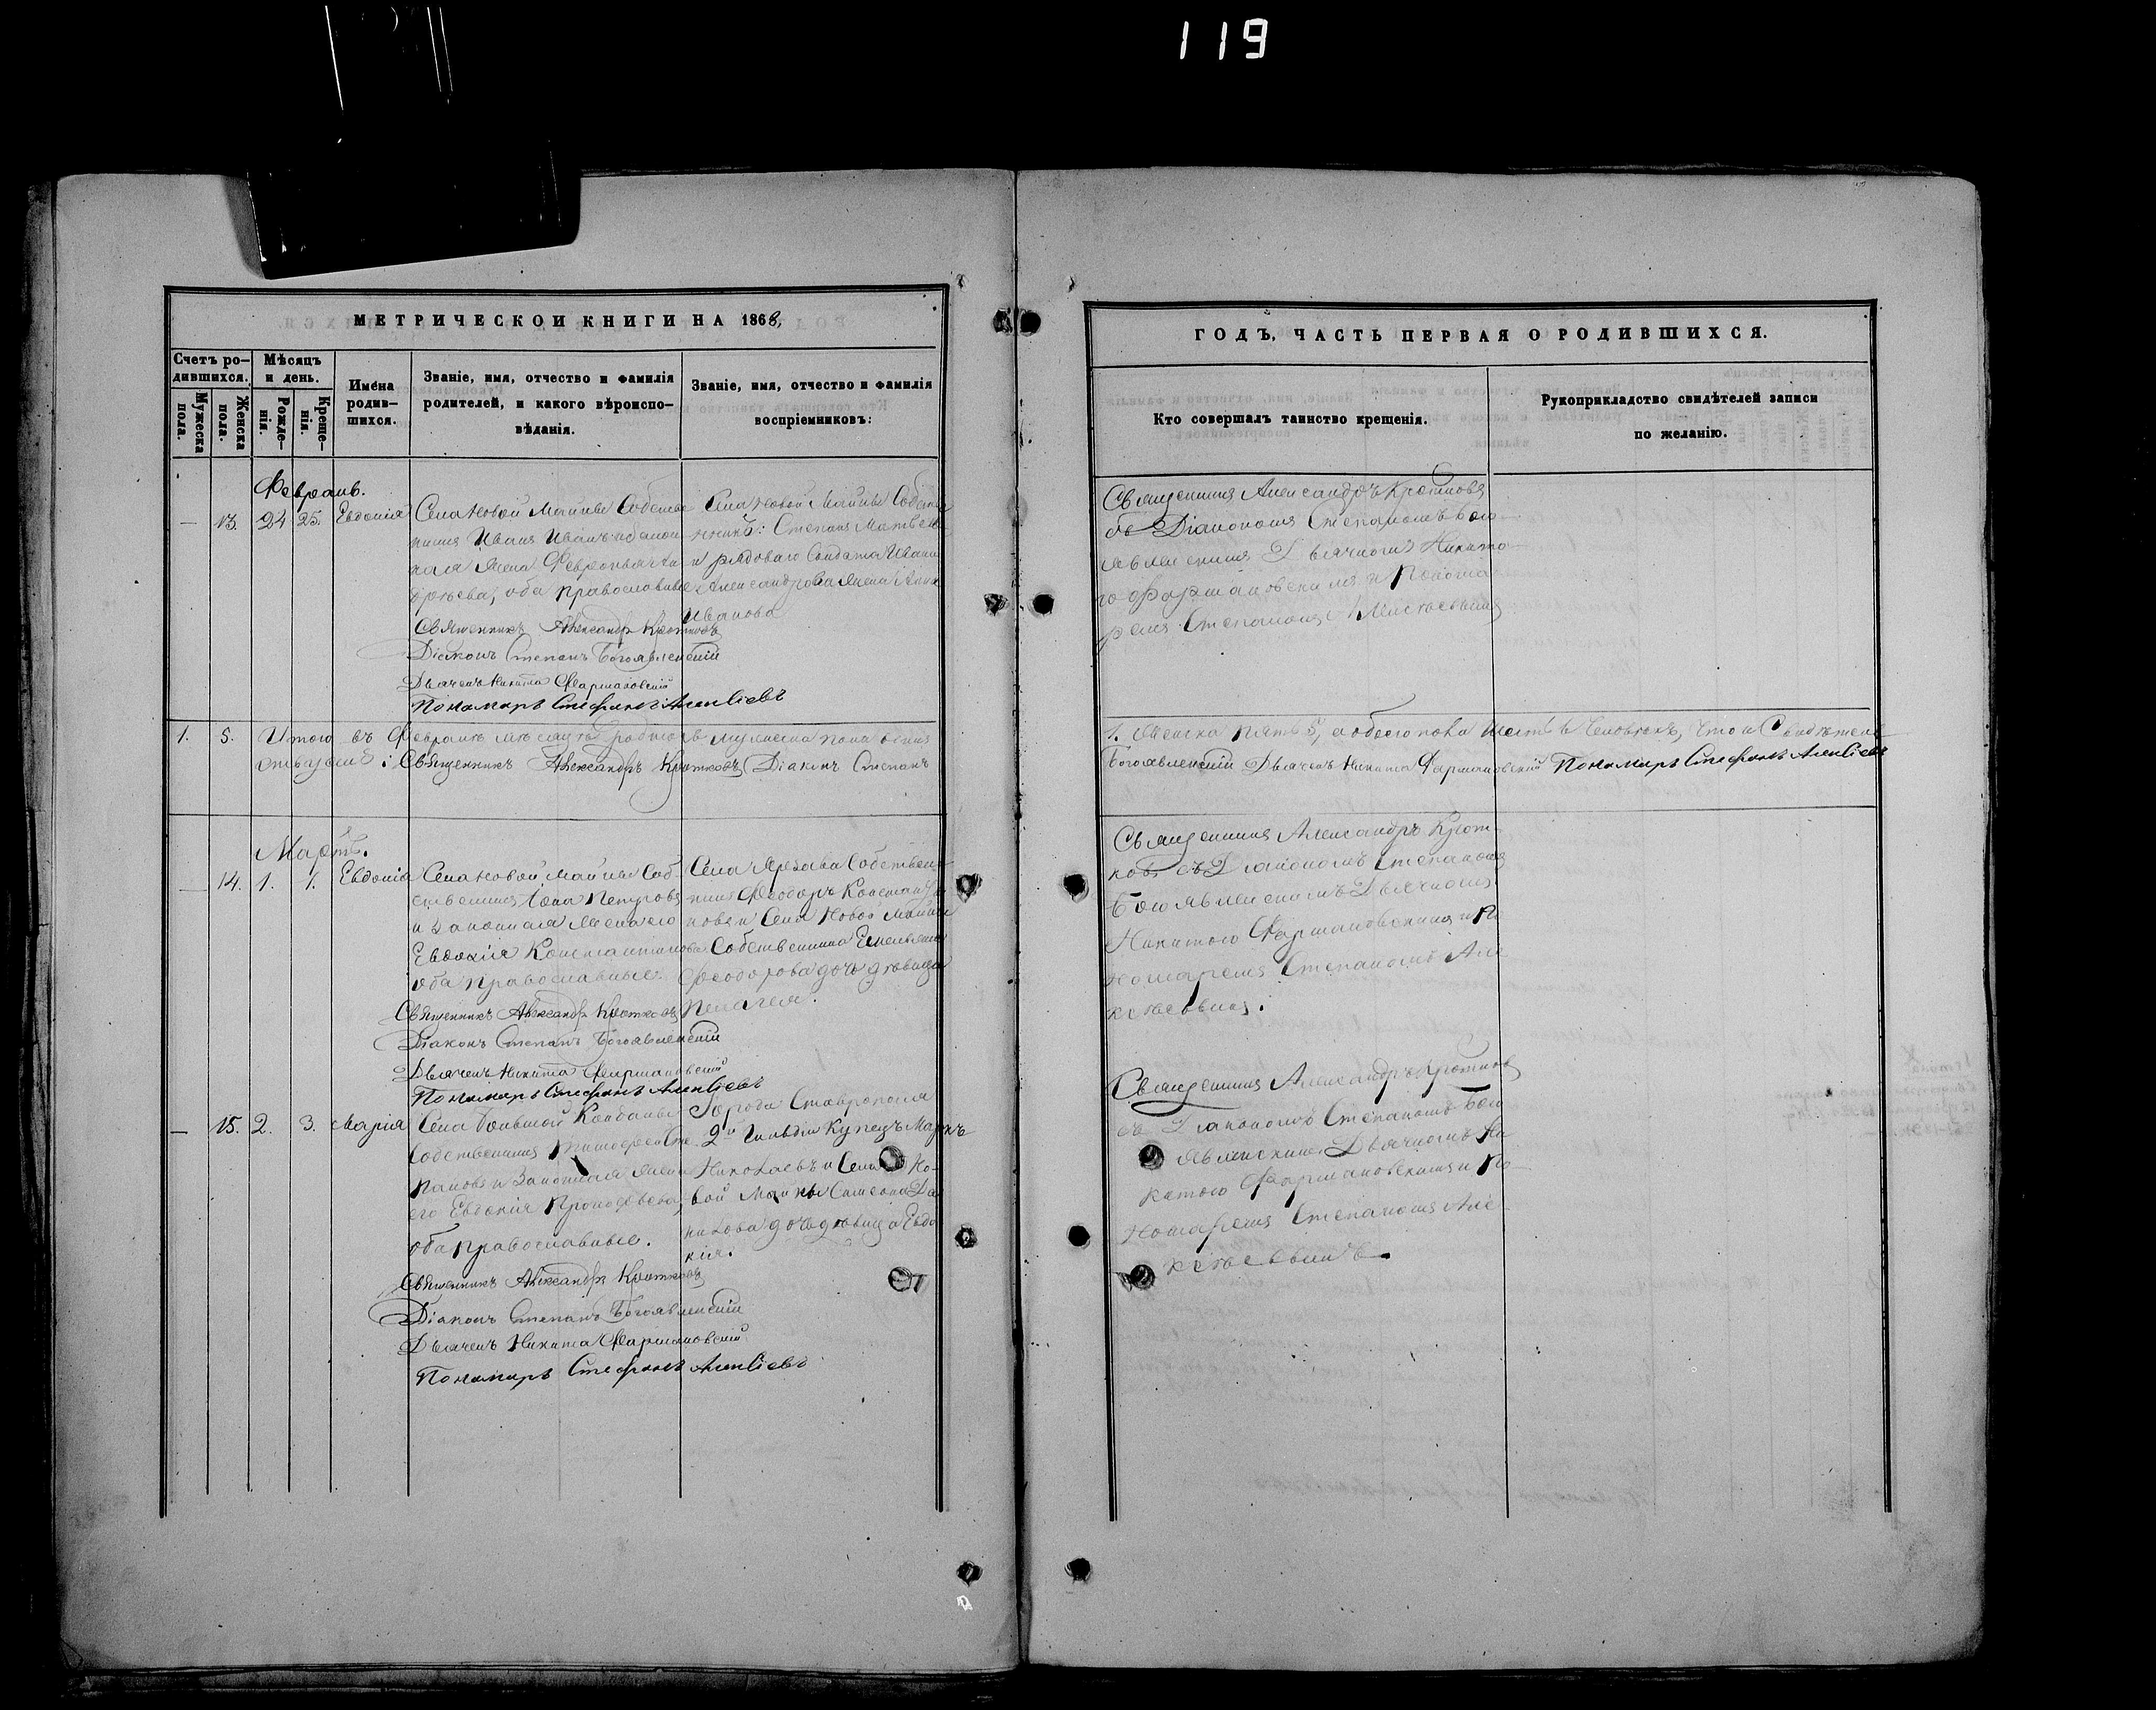 119
МЕТРИЧЕСКОЙ КНИГИ НА 1868,
Счетъ ро-
дившихся.
Мѣсяцъ
и день.
Мужеска
пола.
Женска
пола.
Рожде-
нія.
Креще-
нія.
Имена
родив-
шихся.
Званіе, имя, отчество и фамилія
родителей, и какого вѣроиспо-
вѣданія.
Званіе, имя, отчество и фамилія
воспріемниковъ:
Февраль.
— 13. 24 25. Евдокія
Села Новой Майны Собствен-
никъ Иванъ
жена
оба православные
Священникъ Александръ Кротковъ
Діаконъ Степанъ Богоявленскій
Дьячекъ Никита Фармаковскій
Пономарь Стефанъ Алексіевъ
Села Новой Майны Собствен-
никъ: Степанъ
и рядоваго Солдата Ивана
Александрова жена Анна
Иванова
1. 5. Итого въ Февралѣ мѣсяцѣ родилось мужеска пола одинъ
Священникъ Александръ Кротковъ Діаконъ Степанъ
Мартъ.
— 14. 1. 1. Евдокія
Села Новой Майны Соб-
ственникъ Петровъ
и законная жена его
Евдокія Константинова
оба православные.
Священникъ Александръ Кротковъ
Діаконъ Степанъ Богоявленскій
Дьячекъ Никита Фармаковскій
Пономарь Стефанъ Алексіевъ
Села Собствен-
никъ Феодоръ Константи-
новъ и Села Новой Майны
Собственника Емельяна
Феодорова дочь дѣвица
Пелагея.
— 15. 2. 3. Марія
Села Большой Кандалы
Собственникъ Тимофей Сте-
пановъ и Законная жена
его Евдокія Прокофьева,
оба православные.
Священникъ Александръ Кротковъ
Діаконъ Степанъ Богоявленскій
Дьячекъ Никита Фармаковскій
Пономарь Стефанъ Алексіевъ
Города Ставрополя
2й Гильдіи Купецъ Маркъ
Николаевъ и Села Но-
вой Майны Симеона Да-
нилова дочь дѣвица Евдо
кія.
ГОДЪ, ЧАСТЬ ПЕРВАЯ О РОДИВШИХСЯ.
Кто совершалъ таинство крещенія.
Рукоприкладство свидѣтелей записи
по желанію.
Священникъ Александръ Кротковъ
съ Діакономъ Степаномъ Бого-
явленскимъ Дьячкомъ Никито-
ю Фармаковскимъ и Понома-
ремъ Степаномъ Алексѣевымъ
1. Женска пять 5, а обоего пола шесть 6 Человѣкъ, что и Свидѣтель-
Богоявленскій Дьячекъ Никита Фармаковскій Пономарь Стефанъ Алексіевъ
Священникъ Александръ Крот-
ковъ съ Діакономъ Степаномъ
Богоявленскимъ Дьячкомъ
Никитою Фармаковскимъ и По
номаремъ Степаномъ Але
ксѣевымъ.
Священникъ Александръ Кротков
съ Діакономъ Степаномъ Бого
явленскимъ Дьячкомъ Ни
китою Фармаковскимъ и По-
номаремъ Степаномъ Але
ксѣевымъ